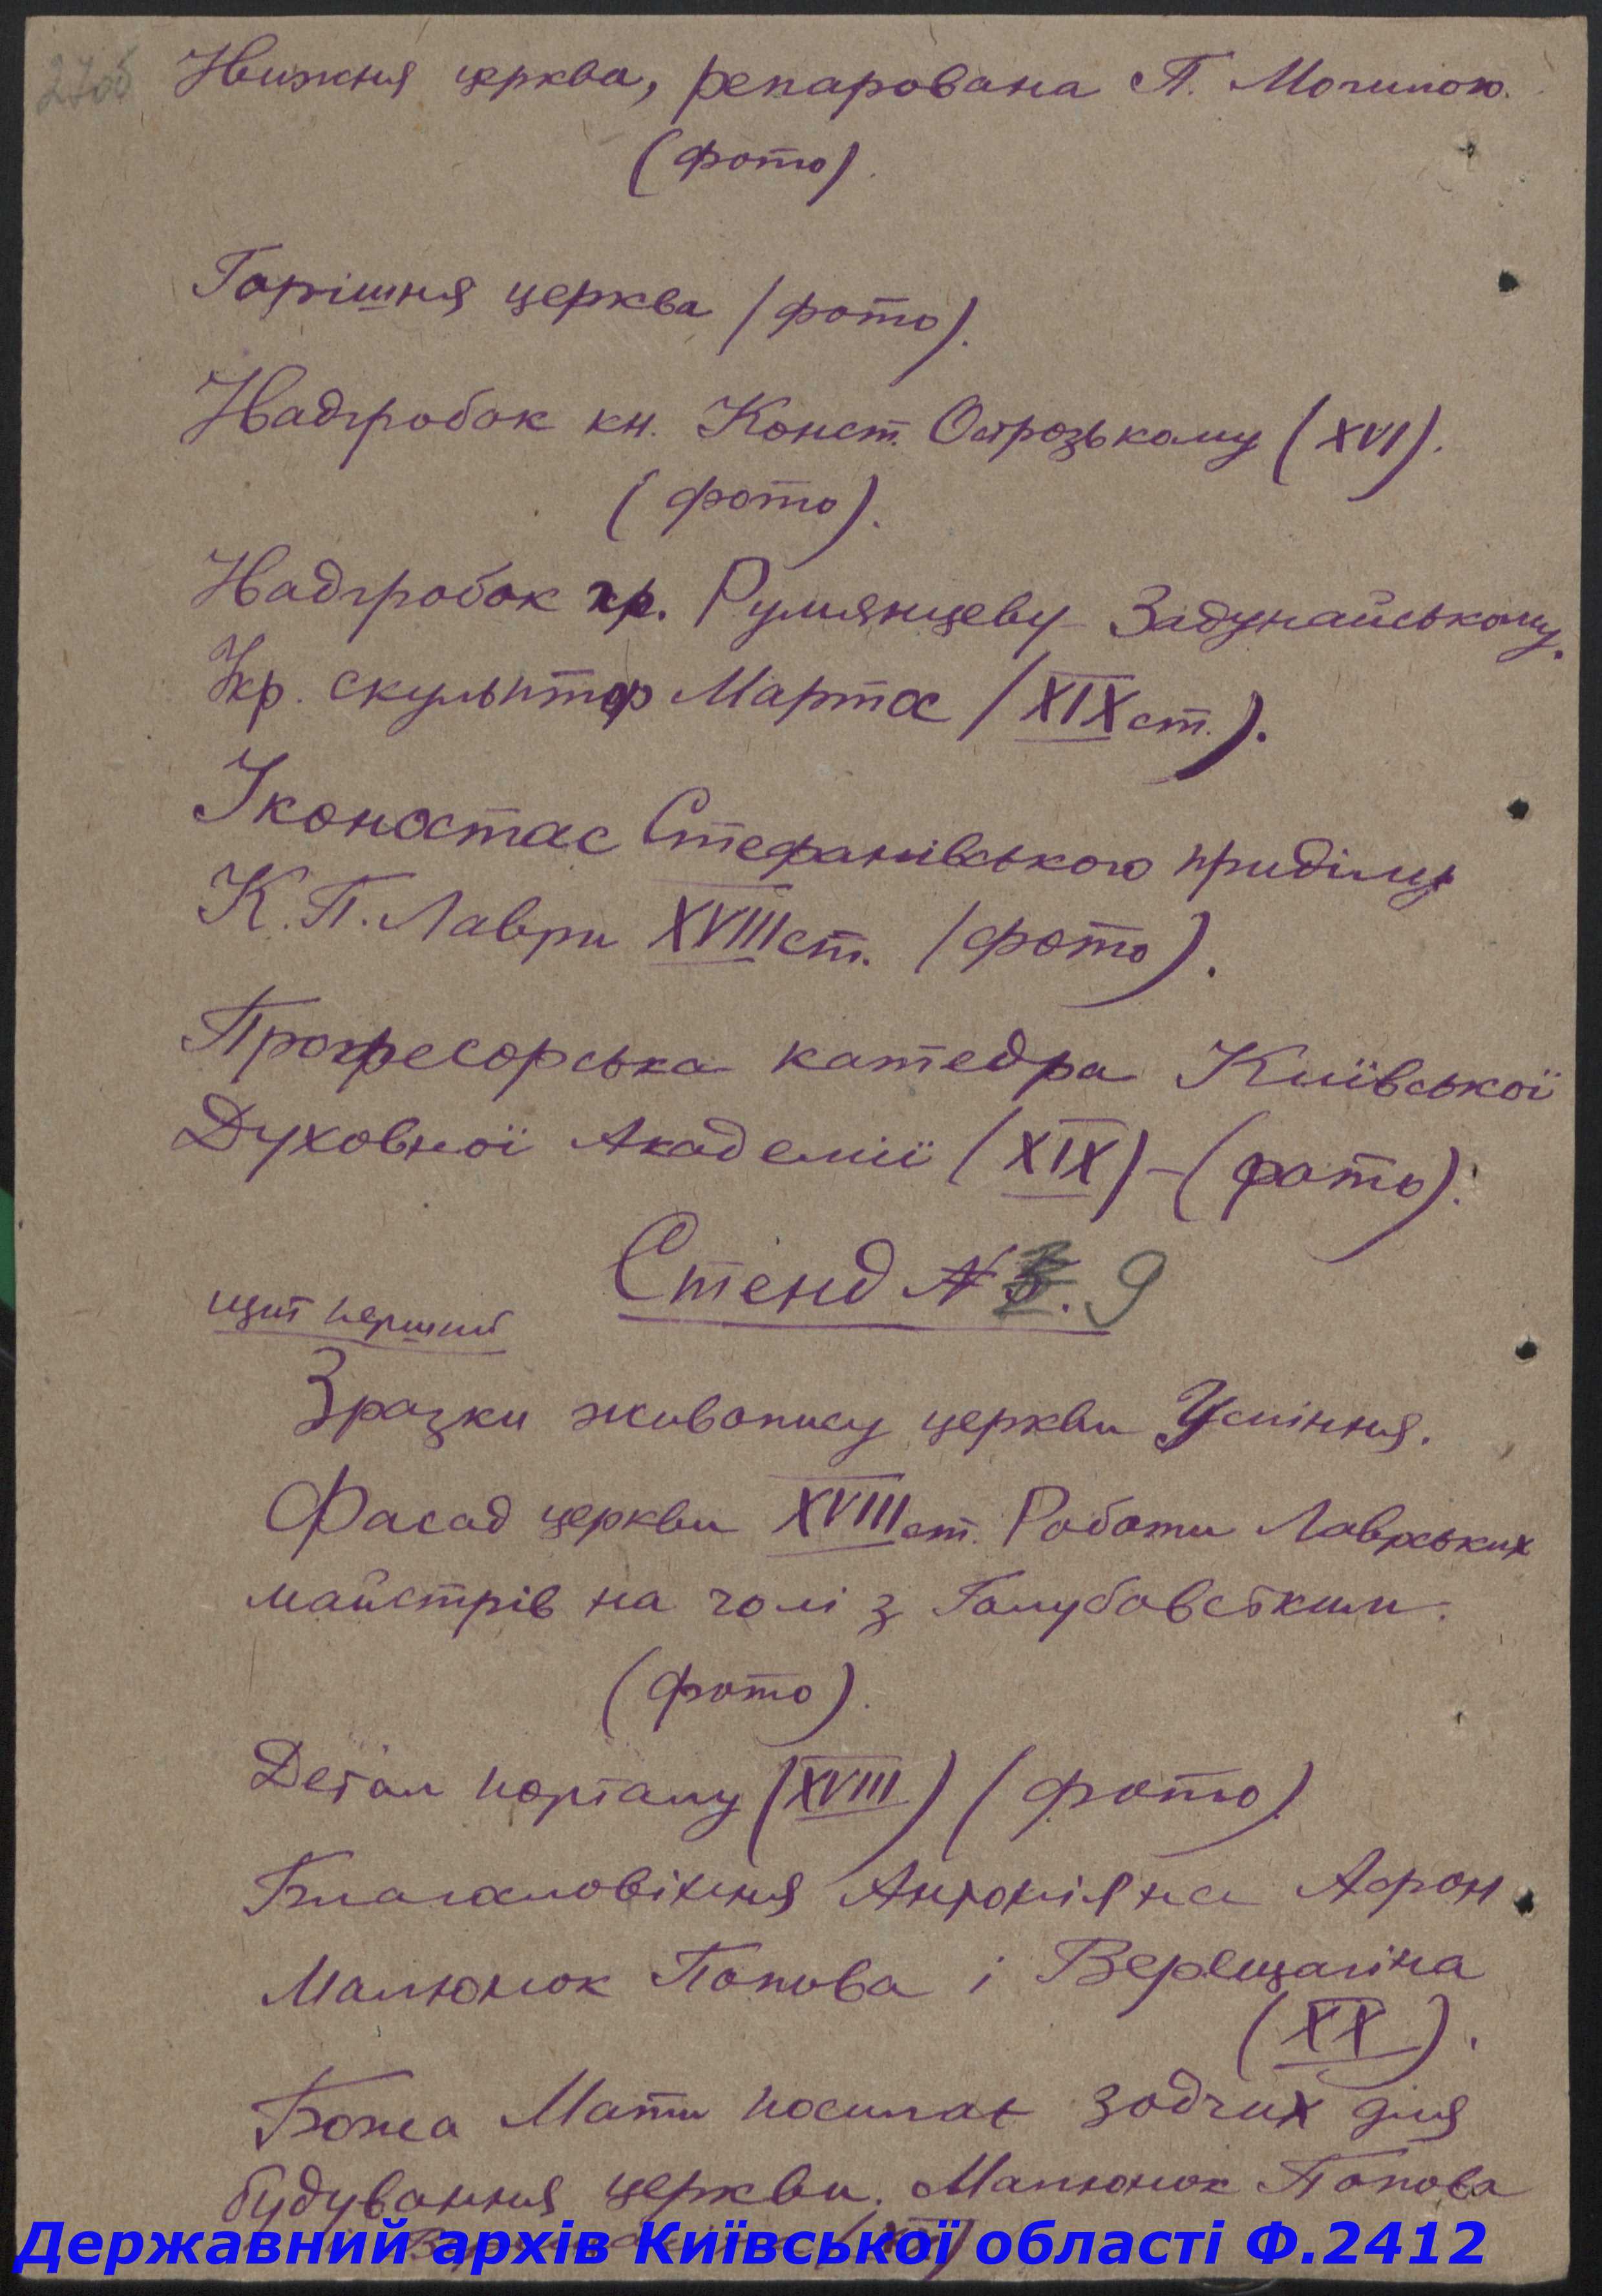 27об
Нижня церква, репарована П. Могилою.
(фото).
Горішня церква (фото).
Надгробок кн. Конст. Острозькому (XVI).
(фото).
Надгробок гр. Румянцеву Задунайському.
Укр. скульптор Мартос (XIX ст.).
Іконостас Стефанівського приділу
К.П. Лаври XVIII ст. (фото).
Професорська катедра Київської
Духовної Академії (XIX) – (фото).
Стенд № 9
щит перший
Зразки живопису церкви Успіння.
Фасад церкви XVIII ст. Роботи Лаврських
майстрів на чолі з Голубовським.
(фото).
Детал порталу (XVIII) (фото)
Благословіння Антонія на Афон
Малюнок Попова і Верещагіна
(XX).
Божа Мати посилає зодчих для
будування церкви. Малюнок Попова
Державний архів Київської області Ф.2412